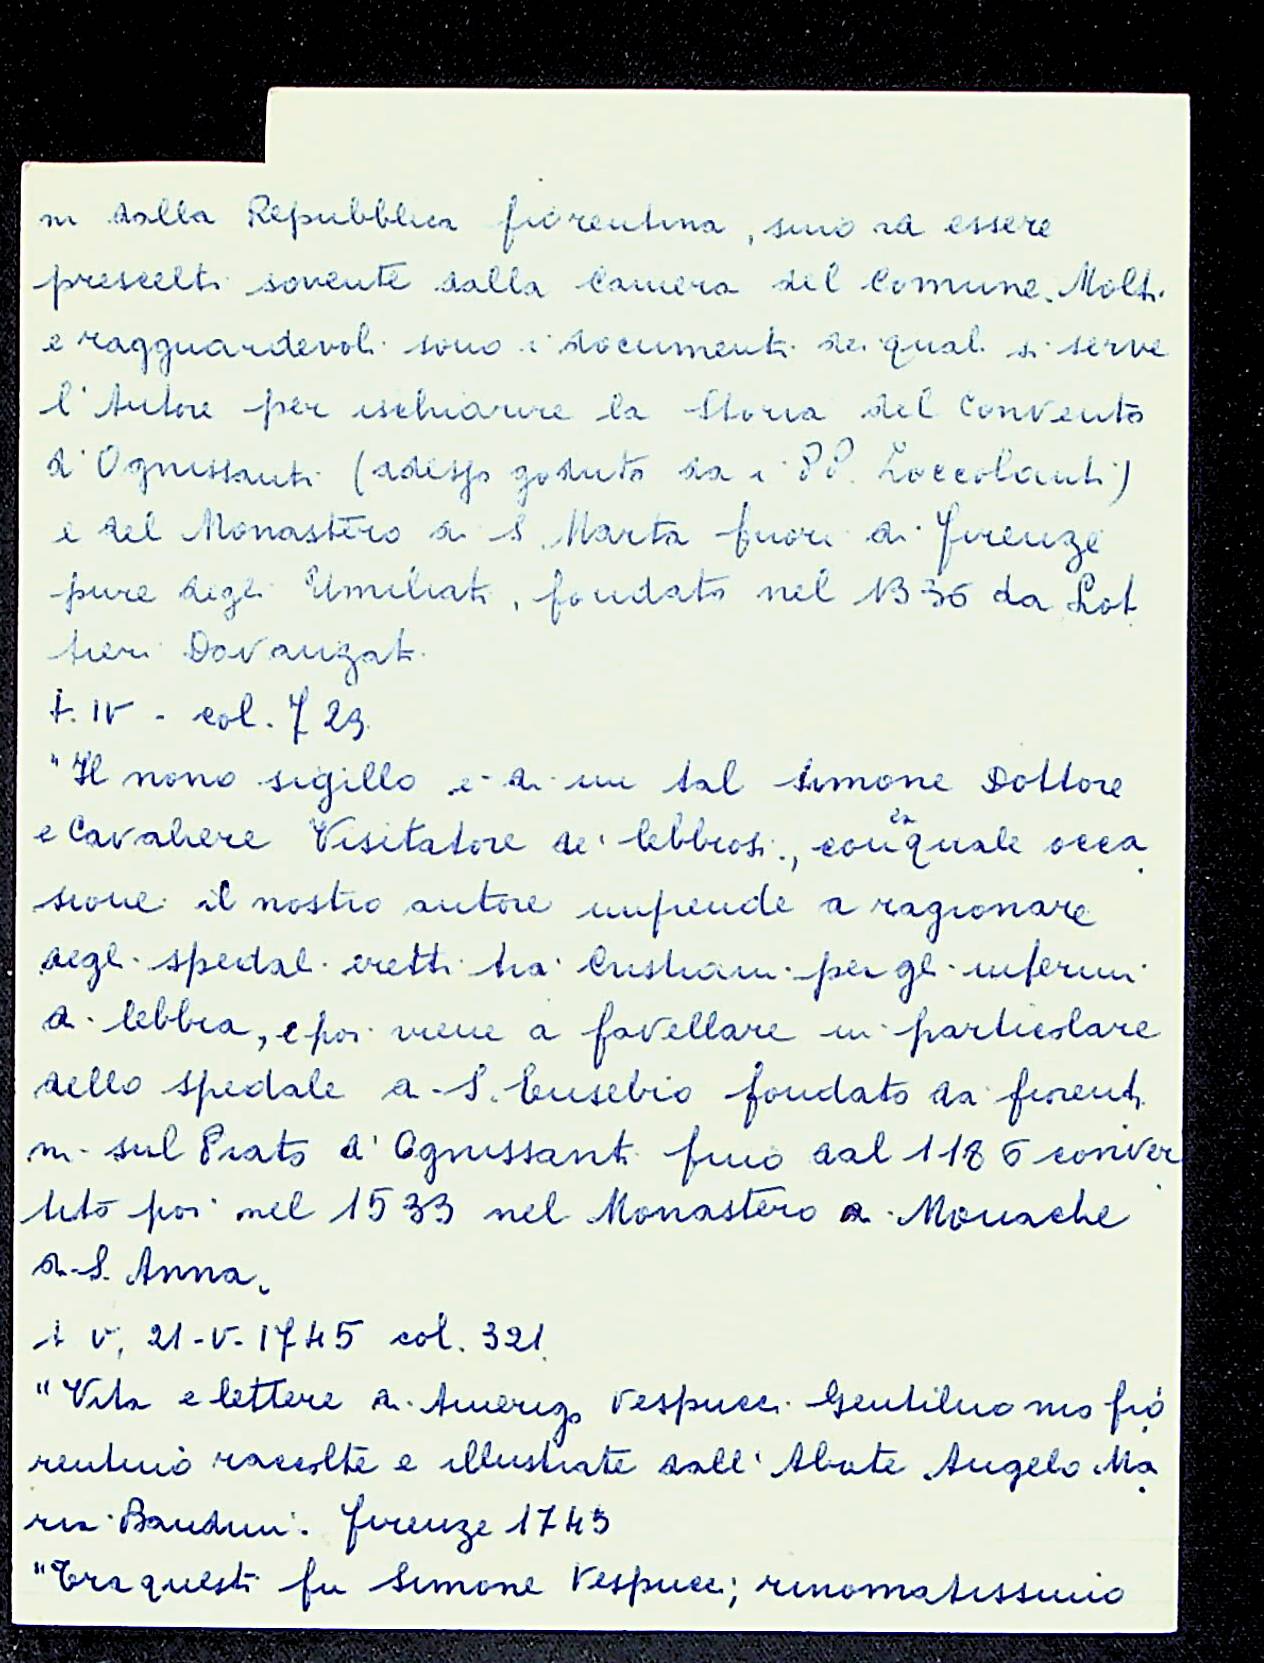 ni dalla Repubblica fiorentina, sino ad essere
prescelti sovente dalla Camera del Comune. Molti
e ragguardevoli sono i documenti dei quali si serve
l'Autore per ischiarire la Storia del Convento
d'Ognissanti (adesso goduto da i PP. Zoccolanti)
e del Monastero di S. Marta fuori di Firenze
pure degli Umiliati, fondato nel 1336 da Lot
tieri Davanzati.
t. IV - col. 729.
"Il nono sigillo è di un tal Simone Dottore
e Cavaliere Visitatore de' lebbrosi, con la quale occa
sione il nostro autore imprende a ragionare
degli spedali eretti tra' Cristiani per gli infermi
di lebbra, e poi viene a favellare in particolare
dello spedale di S. Eusebio fondato da fiorenti
ni sul Prato d'Ognissanti fino dal 1186 conver
tito poi nel 1533 nel Monastero di Monache
di S. Anna.
t V, 21-V-1745 col. 321.
"Vita e lettere di Amerigo Vespucci Gentiluomo fio
rentino raccolte e illustrate dall'Abate Angelo Ma
ria Bandini. Firenze 1745
"Tra questi fu Simone Vespucci; rinomatissimo